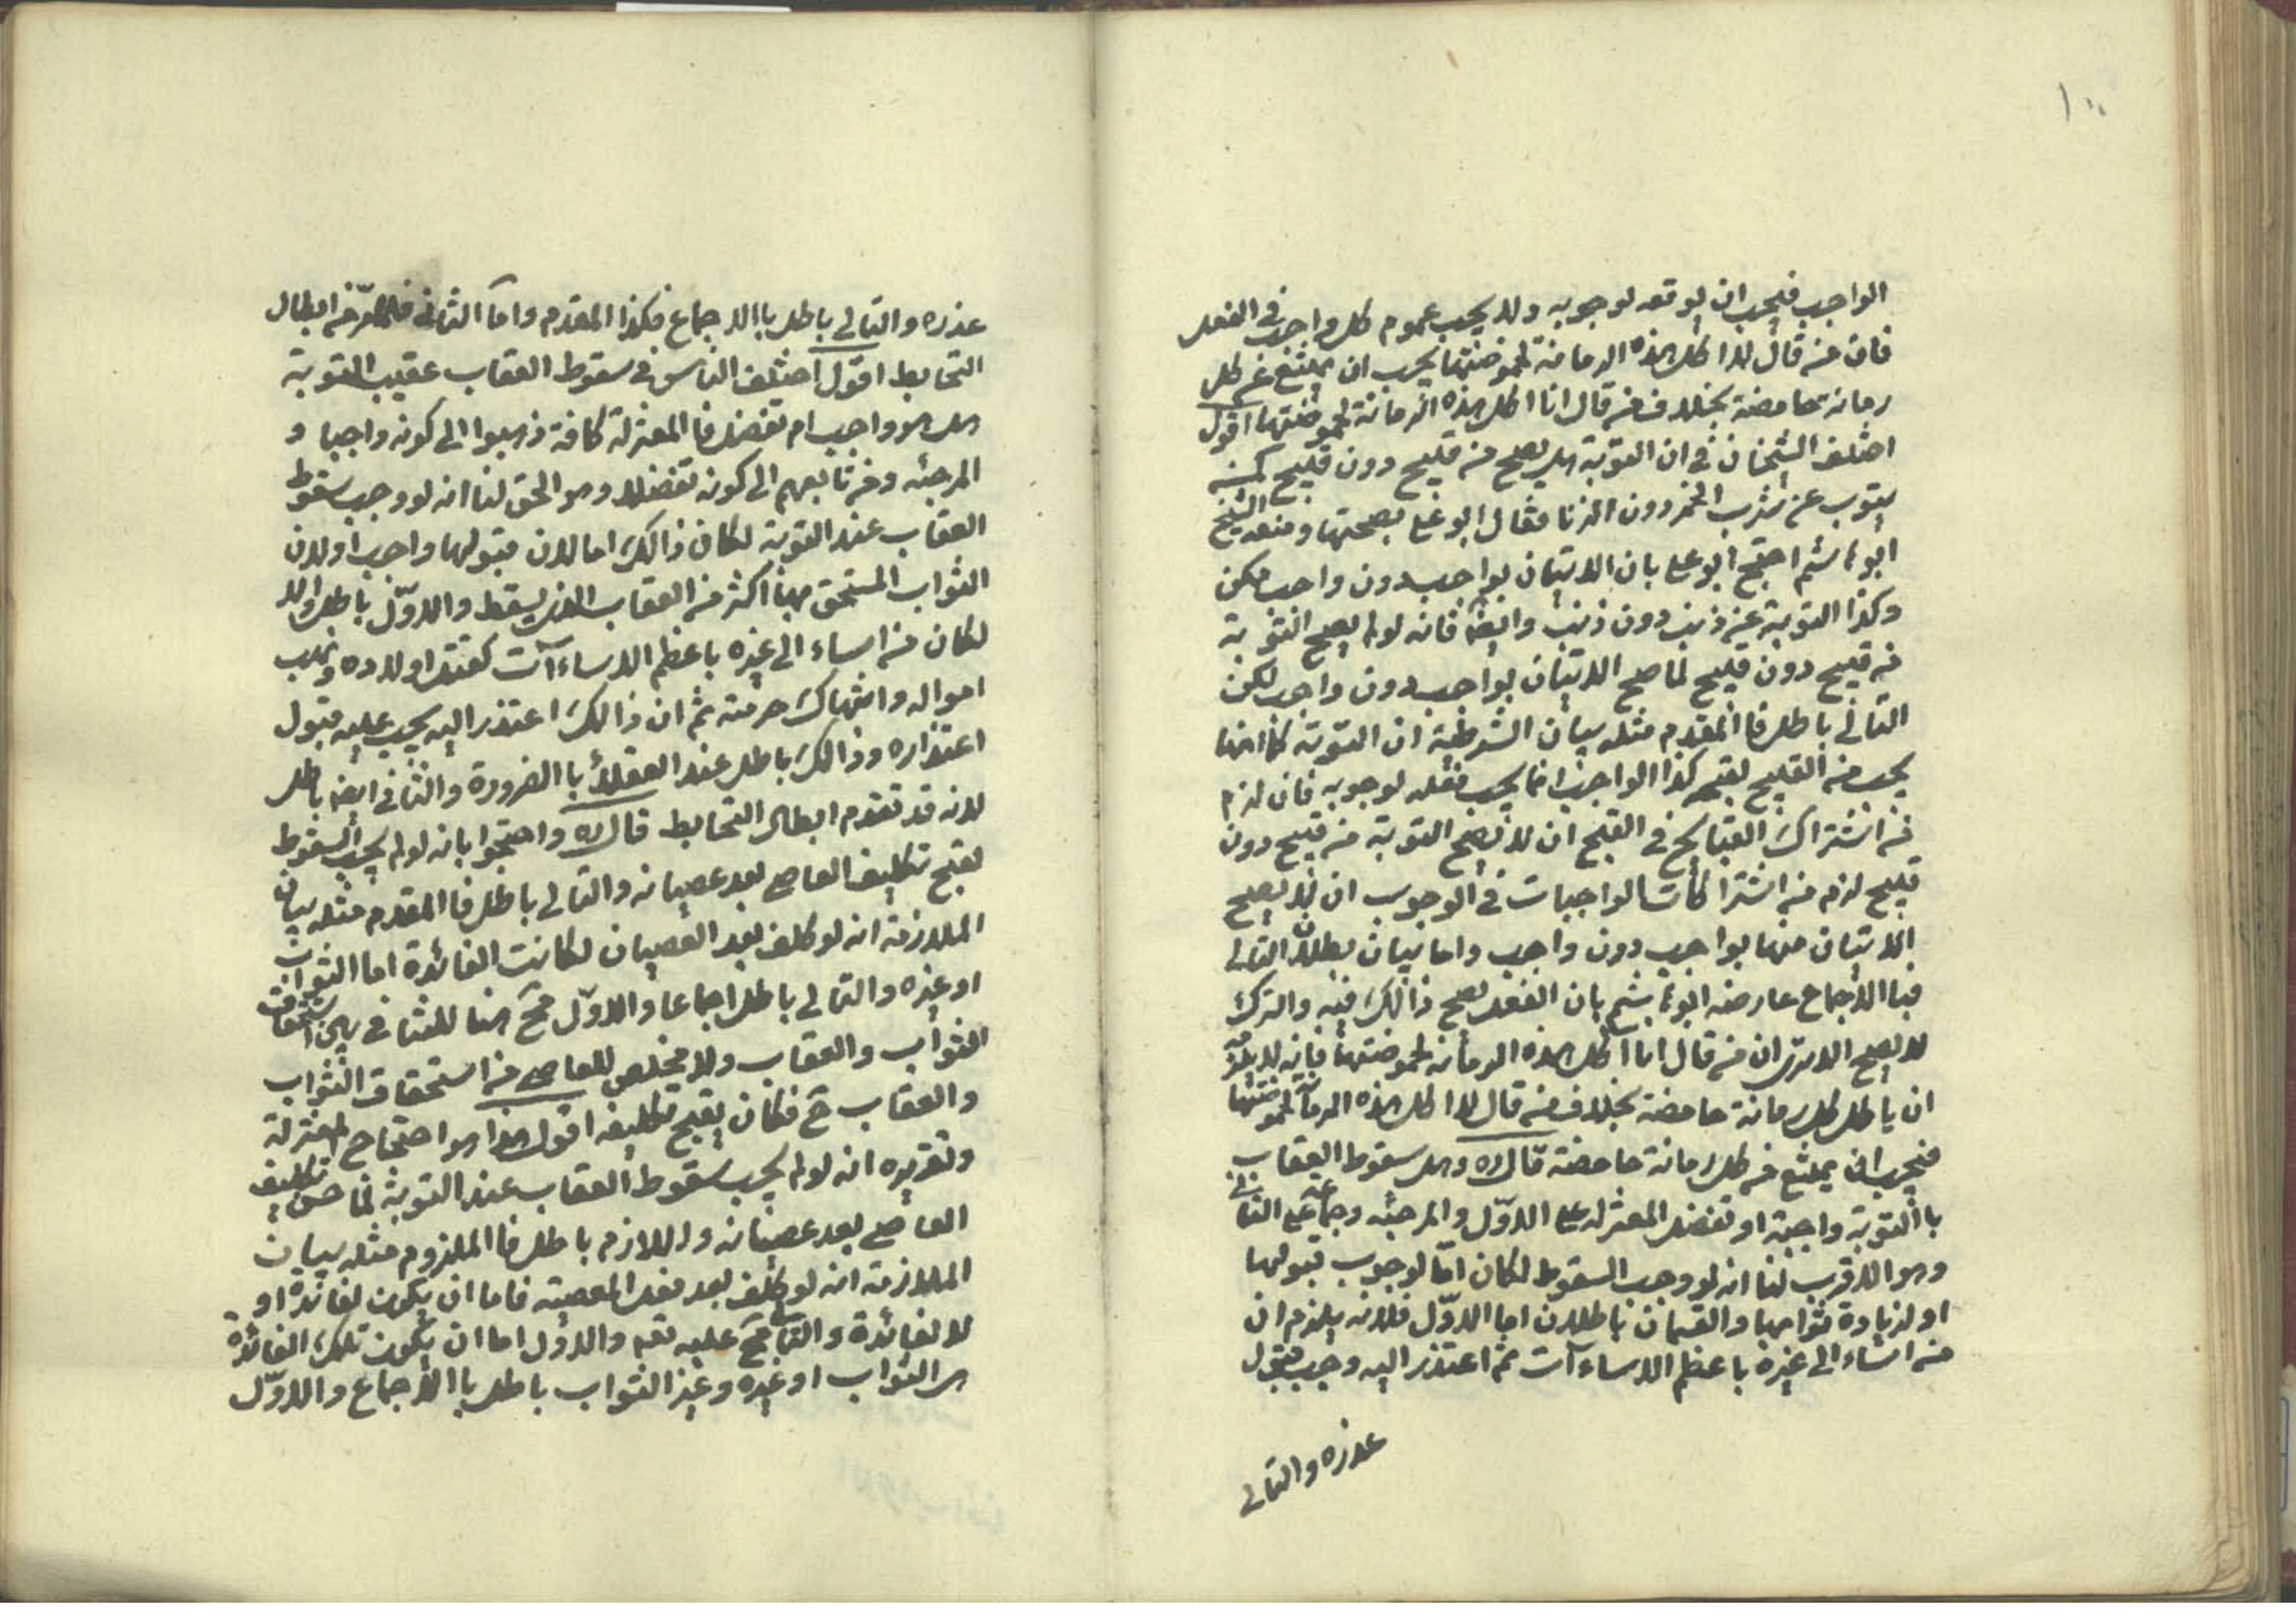 ١٠٠
الواجب فيجب ان يوقعه لوجوبه ولا يجب عموم كل واجب في الفعل
فان من قال لا اكل هذه الرمانة لحموضتها يجب ان يمتنع عن كل
رمانة حامضة بخلاف من قال انا اكل هذه الرمانة لحموضتها اقول
اختلف الشيخان في ان التوبة هل يصح من قبيح دون قبيح كمن
يتوب عن شرب الخمر دون الزنا فقال ابو علي بصحتها ومنعه الشيخ
ابو هاشم احتج ابو علي بان الاتيان بواجب دون واجب ممكن
وكذا التوبة عن ذنب دون ذنب وايضا فانه لو لم يصح التوبة
من قبيح دون قبيح لما صح الاتيان بواجب دون واجب لكن
التالي باطل فا المقدم مثله بيان الشرطية ان التوبة كما انها
يجب من القبيح لقبحه كذا الواجب انما يجب فعله لوجوبه فان لزم
من اشتراك القبايح في القبح ان لا يصح التوبة من قبيح دون
قبيح لزم من اشتراك الواجبات في الوجوب ان لا يصح
الاتيان منها بواجب دون واجب واما بيان بطلان التالي
فبا الاجماع عارضه ابو هاشم بان الفعل يصح ذالك فيه والترك
لا يصح الا ترى ان من قال انا اكل هذه الرمانة لحموضتها فانه لا يلزم
ان ياكل كل رمانة حامضة بخلاف من قال لا اكل هذه الرمانة لحموضتها
فيجب ان يمتنع من كل رمانة حامضة قال ره وهل سقوط العقاب
با التوبة واجبة او تفضل المعتزلة على الاول والمرجئه وجماعة على الثاني
وهو الاقرب لنا انه لو وجب السقوط لكان اما لوجوب قبولها
او لزيادة ثوابها والقسمان باطلان اما الاول فلانه يلزم ان
من اساء الى غيره باعظم الاساءآت ثم اعتذر اليه وجب قبول
عذره والتالي
عذره والتالي باطل با الاجماع فكذا المقدم واما الثاني فلما مر من ابطال
التحابط اقول اختلف الناس في سقوط العقاب عقيب التوبة
هل هو واجب ام تفضل فا المعتزلة كافة ذهبوا الى كونه واجبا و
المرجئه ومن تابعهم الى كونه تفضلا وهو الحق لنا انه لو وجب سقوط
العقاب عند التوبة لكان ذالك اما لان قبولها واجب او لان
الثواب المستحق بها اكثر من العقاب الذي يسقط والاول باطل والا
لكان من اساء الى غيره باعظم الاساءآت كقتل اولاده ونهب
امواله وانتهاك حرمته ثم ان ذالك اعتذر اليه يجب عليه قبول
اعتذاره وذالك باطل عند العقلاء با الضرورة والثاني ايضا باطل
لانه قد تقدم ابطال التحابط قال ره واحتجوا بانه لو لم يجب السقوط
لقبح تكليف العاصي بعد عصيانه والتالي باطل فا المقدم مثله بيان
الملازمة انه لو كلف بعد العصيان لكانت الفائدة اما الثواب
او غيره والتالي باطل اجماعا والاول مح هنا للتنافي بين استحقاق
الثواب والعقاب ولا مخلص للعاصي من استحقاق الثواب
والعقاب ح فكان يقبح تكليفه اقول هذا هو احتجاج المعتزلة
وتقريره انه لو لم يجب سقوط العقاب عند التوبة لما حسن تكليف
العاصي بعد عصيانه واللازم باطل فا الملزوم مثله بيان
الملازمة انه لو كلف بعد فعل المعصية فاما ان يكون لفائدة او
لا لفائدة والثاني مح عليه تعم والاول اما ان يكون تلك الفائدة
هي الثواب او غيره وغير الثواب باطل با الاجماع والاول